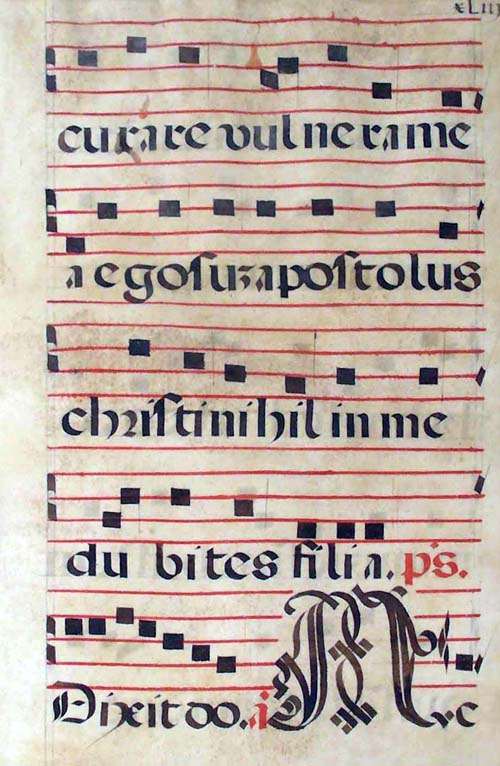 xLiii
curare vulnera me
a ego suz apostolus
christi nihil in me
dubites filia. p's.
Dixit do. a N vc